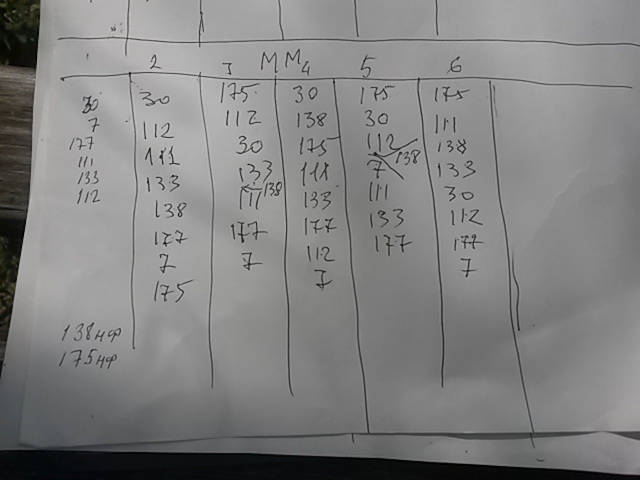 1 2 3 ММ4 5 6
30 30 175 30 175 175
7 112 112 138 30 111
177 111 30 175 112 138
111 133 133 111 7 138 133
133 138 111 138 133 111 30
112 177 177 177 133 112
7 7 112 177 177
175 7 7
138нф
175нф